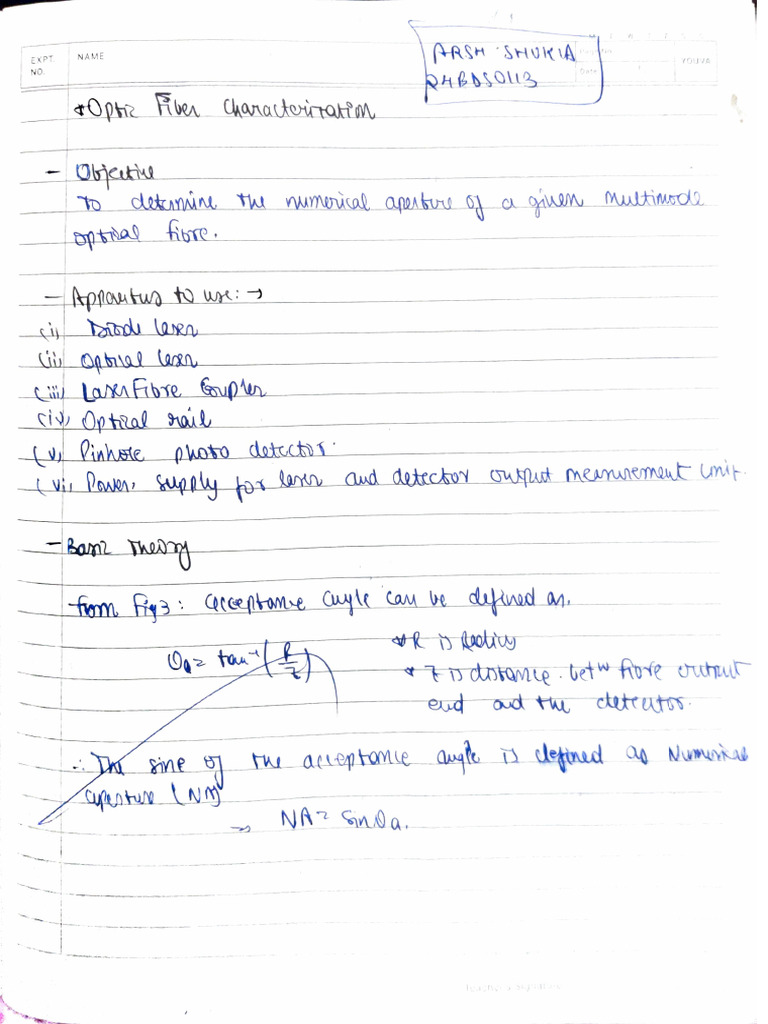 EXPT. NO.
NAME
YOUVA
Date
ARSH SHUKLA
24BDS0113
*Optic Fiber Characterization
- Objective
To determine the numerical aperture of a given multimode
optical fibre.
- Apparatus to use: →
(i) Diode laser
(ii) Optical laser
(iii) Laser Fibre Coupler
(iv) Optical rail
(v) Pinhole photo detector.
(vi) Power supply for laser and detector output measurement unit.
- Basic Theory
from Fig 3: acceptance angle can be defined as.
θa = tan⁻¹(R/Z)
* R is Radius
* Z is distance betʷ fibre output
end and the detector.
∴ The sine of the acceptance angle is defined as Numerical
aperture (NA)
⇒ NA = Sinθa.
Teacher's Signature